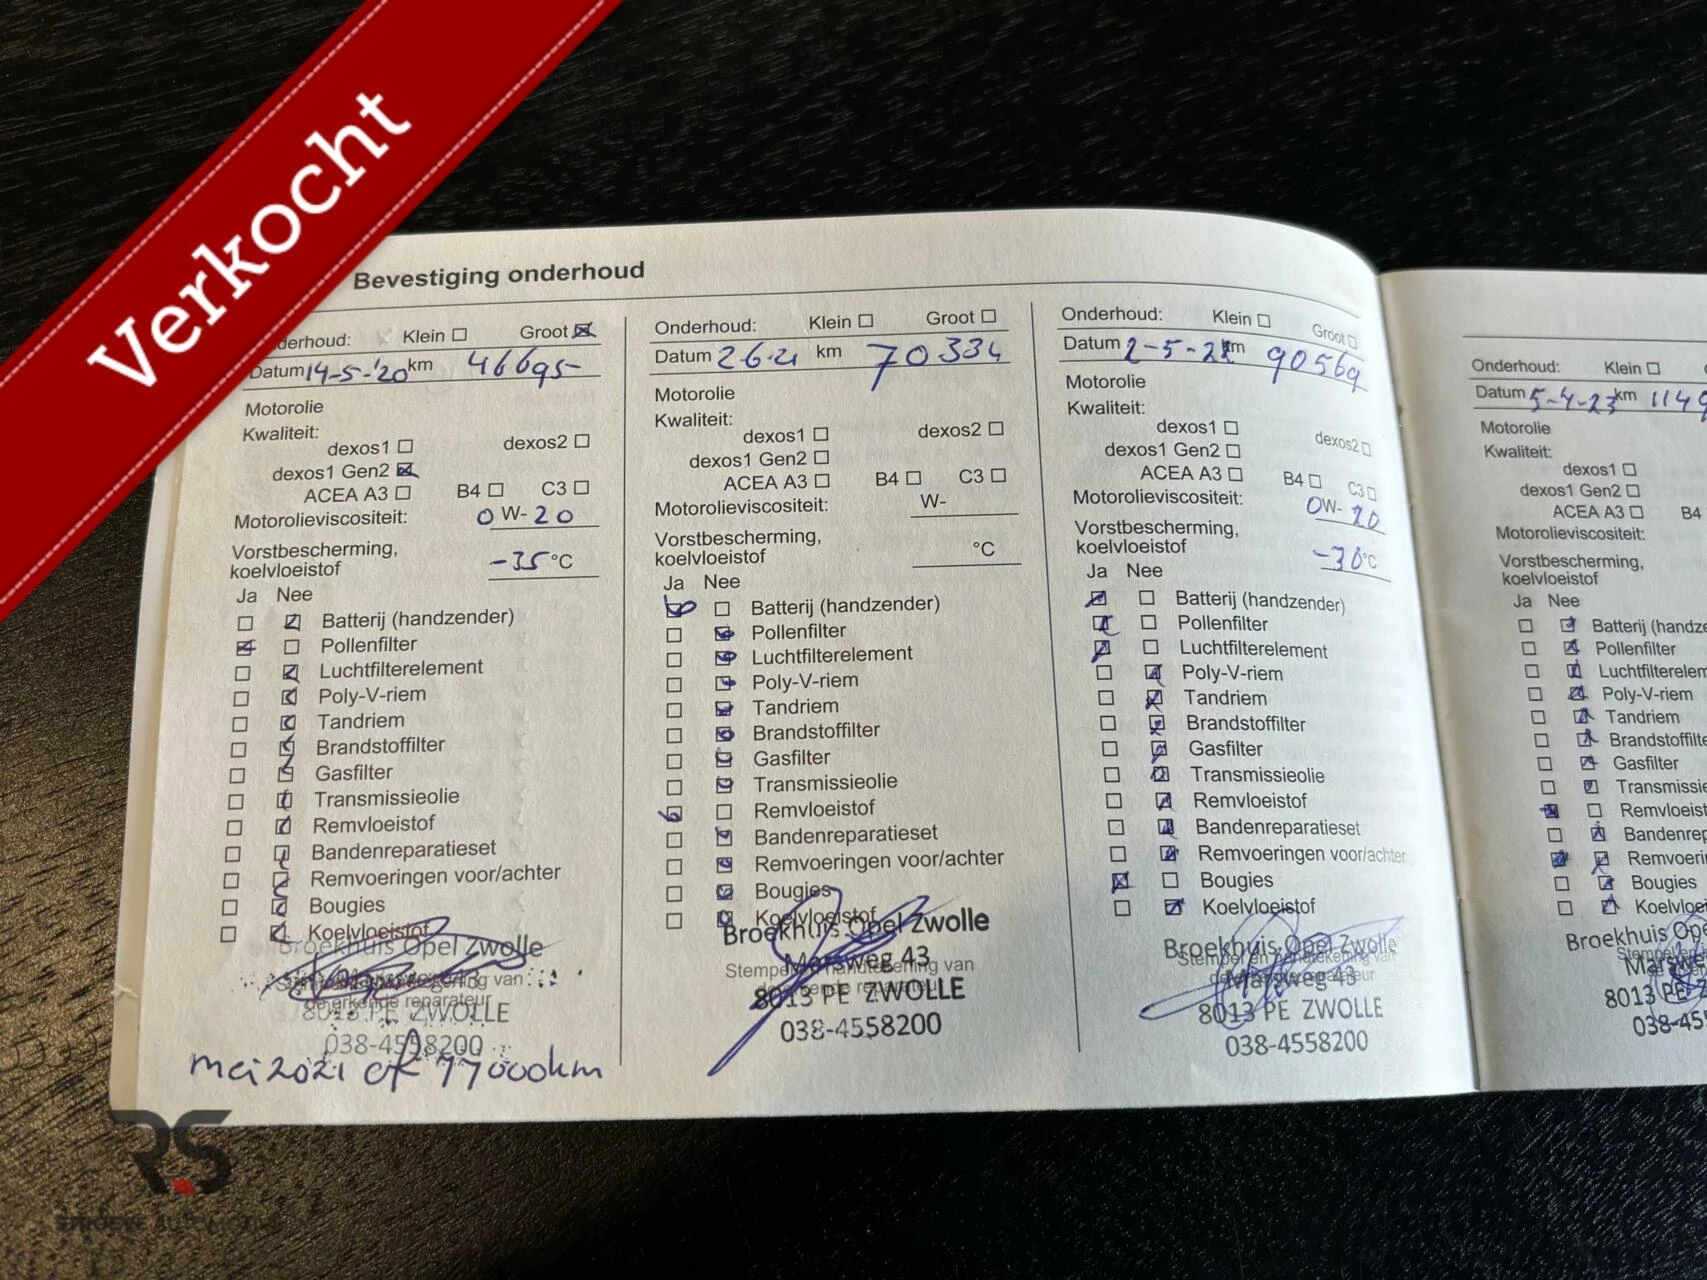 Verkocht
Bevestiging onderhoud
Klein Groot
Datum 14-5-'20 km 46695
Motorolie
Kwaliteit:
dexos1 dexos2
dexos1 Gen2
ACEA A3 B4 C3
Motorolieviscositeit: 0 W- 20
Vorstbescherming,
koelvloeistof -35 °C
Ja Nee
Batterij (handzender)
Pollenfilter
Luchtfilterelement
Poly-V-riem
Tandriem
Brandstoffilter
Gasfilter
Transmissieolie
Remvloeistof
Bandenreparatieset
Remvoeringen voor/achter
Bougies
Koelvloeistof
Broekhuis Opel Zwolle
8013 PE ZWOLLE
038-4558200
mei 2021 of 77000km
Onderhoud: Klein Groot
Datum 2-6-21 km 70334
Motorolie
Kwaliteit:
dexos1 dexos2
dexos1 Gen2
ACEA A3 B4 C3
Motorolieviscositeit: W-
Vorstbescherming,
koelvloeistof °C
Ja Nee
Batterij (handzender)
Pollenfilter
Luchtfilterelement
Poly-V-riem
Tandriem
Brandstoffilter
Gasfilter
Transmissieolie
Remvloeistof
Bandenreparatieset
Remvoeringen voor/achter
Bougies
Koelvloeistof
Broekhuis Opel Zwolle
Marsweg 43
Stempel en handtekening van
de erkende reparateur
8013 PE ZWOLLE
038-4558200
Onderhoud: Klein Groot
Datum 2-5-22 km 90569
Motorolie
Kwaliteit:
dexos1 dexos2
dexos1 Gen2
ACEA A3 B4 C3
Motorolieviscositeit: 0W- 20
Vorstbescherming,
koelvloeistof -30°C
Ja Nee
Batterij (handzender)
Pollenfilter
Luchtfilterelement
Poly-V-riem
Tandriem
Brandstoffilter
Gasfilter
Transmissieolie
Remvloeistof
Bandenreparatieset
Remvoeringen voor/achter
Bougies
Koelvloeistof
Broekhuis Opel Zwolle
Stempel en handtekening van
Marsweg 43
8013 PE ZWOLLE
038-4558200
Onderhoud: Klein
Datum 5-4-23 km 1149
Motorolie
Kwaliteit:
dexos1
dexos1 Gen2
ACEA A3 B4
Motorolieviscositeit:
Vorstbescherming,
koelvloeistof
Ja Nee
Batterij (handze
Pollenfilter
Luchtfilterelem
Poly-V-riem
Tandriem
Brandstoffilte
Gasfilter
Transmissie
Remvloeist
Bandenrep
Remvoerin
Bougies
Koelvloei
Broekhuis Ope
Marswe
8013 PE Z
038-455
RS
STROEVE AUTOMOTIVE